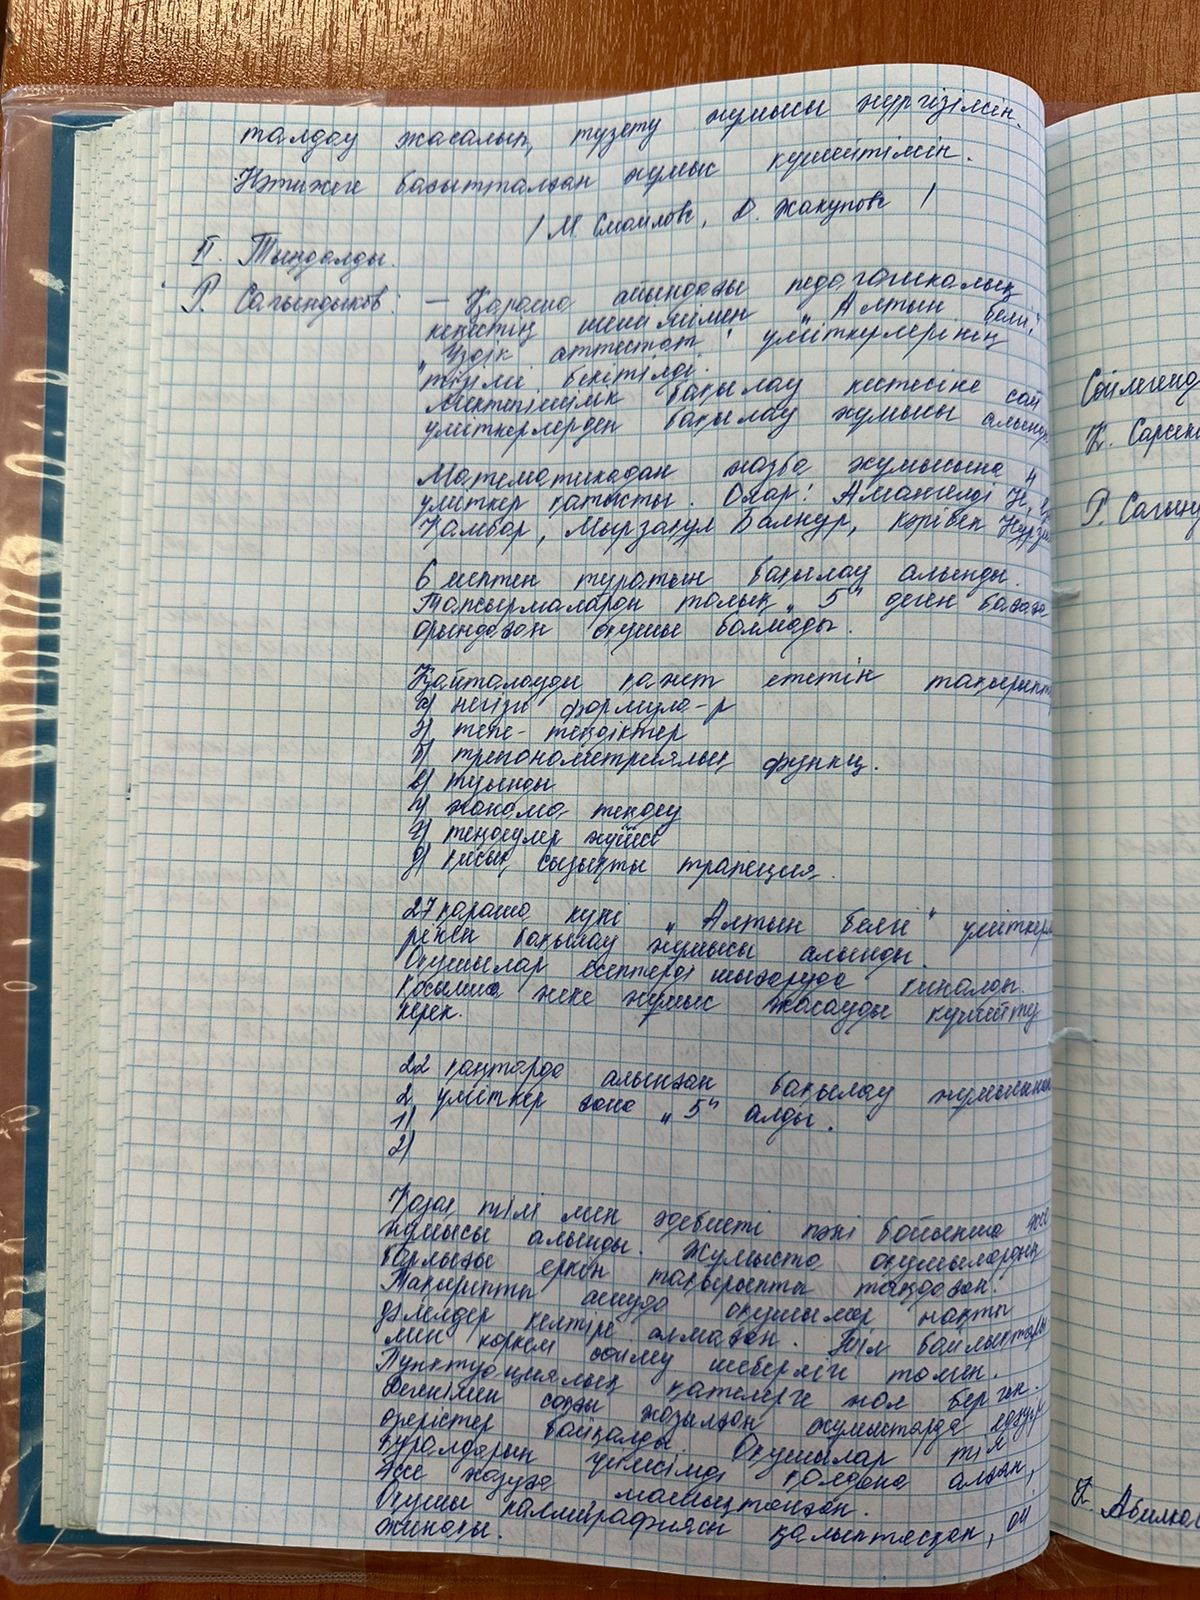 талдау жасалып, түзету жұмысы жүргізілсін.
Нәтижеге бағытталған жұмыс күшейтілсін.
/ М. Смаилов, Д. Жакупов /
II. Тыңдалды.
Р. Сағындықов: – Қараша айындағы педагогикалық
кеңестің шешімімен „Алтын белгі",
„Үздік аттестат" үміткерлерінің
тізімі бекітілді.
Мектепішілік бақылау кестесіне сай
үміткерлерден бақылау жұмысы алынды.
Математикадан жазба жұмысына 4
үміткер қатысты. Олар: Амангелді Н,
Қамбар, Мырзагул Балнур, Кәрібек Нұр
6 есептен тұратын бақылау алынды.
Тапсырмаларды толық „5" деген бағаға
орындаған оқушы болмады.
Қайталауды қажет ететін тақырыпт
а) негізгі формула-р
ә) тепе-теңдіктер
б) тригонометриялық функц.
в) туынды
г) жанама теңдеу
ғ) теңдеулер жүйесі
д) қисық сызықты трапеция.
27 қараша күні „Алтын белгі" үміткерле
рінен бақылау жұмысы алынды.
Оқушылар есептерді шығаруда қиналды.
Қосымша жеке жұмыс жасауды күшейту
керек.
22 қаңтарда алынған бақылау жұмысынан
2 үміткер ғана „5" алды.
1)
2)
Қазақ тілі мен әдебиеті пәні бойынша
жұмысы алынды. Жұмыста оқушылардың
барлығы еркін тақырыпты таңдаған.
Тақырыпты ашуда оқушылар нақты
дәлелдер келтіре алмаған. Тіл байлықтары
мен көркем сөйлеу шеберлігі төмен.
Пунктуациялық қателерге жол берген.
Дегенмен соңғы жазылған жұмыстарда
өзгерістер байқалды. Оқушылар тіл
құралдарын үйлесімді қолдана алған,
эссе жазуға машықтанған.
Оқушы каллиграфиясы қалыптасқан, ой
жинақы.
Сөйленед
К. Сарсен
Р. Сағын
К. Абилка